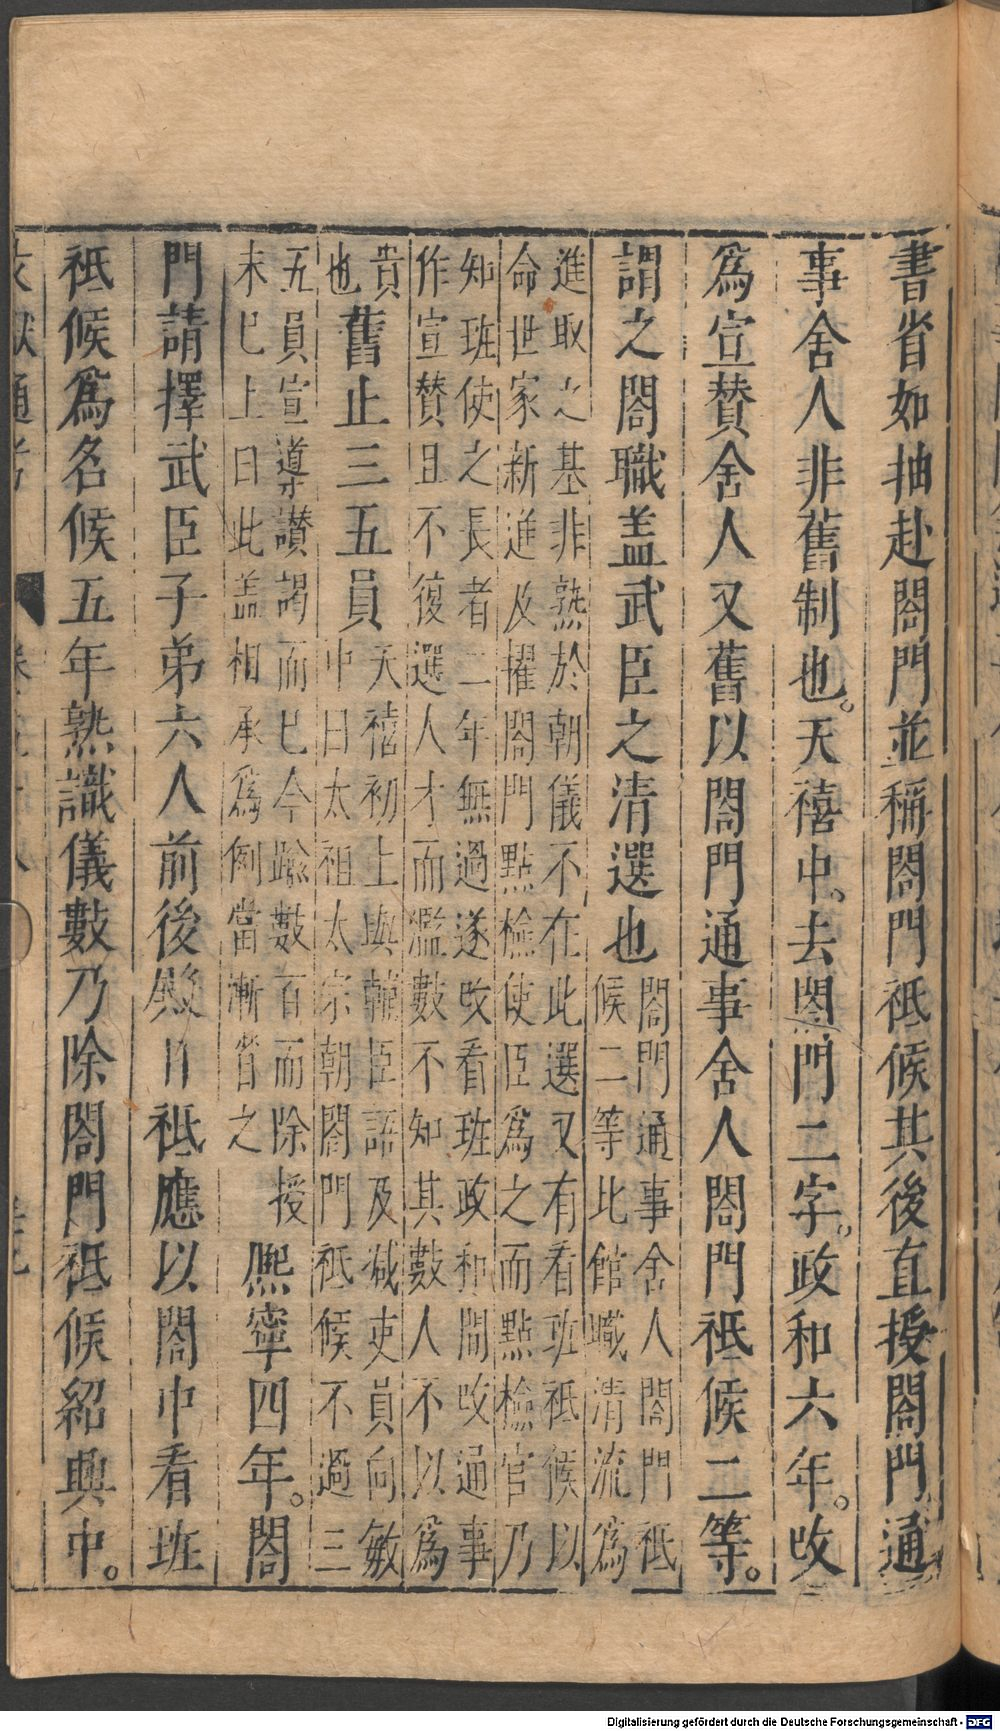 書省如抽赴閤門並稱閤門祗候其後直授閤門通
事舍人非舊制也。天禧中。去閤門二字。政和六年。攺
爲宣贊舍人又舊以閤門通事舍人閤門祗候二等。
謂之閤職盖武臣之清選也
閤門通事舍人閤門祗
候二等比館職清流爲
進取之基非熟於朝儀不在此選又有看班祗候以
命世家新進及擢閤門點檢使臣爲之而點檢官乃
知班使之長者二年無過遂攺看班政和間攺通事
作宣贊且不復選人才而濫數不知其數人不以爲
貴
也
舊止三五員
天禧初上與輔臣語及減吏員向敏
中曰太祖太宗朝閤門祗候不過三
五員宣導讃謁而已今踰數百而除授
未已上曰此盖相承爲例當漸省之
熈寧四年。閤
門請擇武臣子弟六人前後殿日祗應以閤中看班
祗候爲名候五年熟識儀數乃除閤門祗候紹興中。
文獻通考
Digitalisierung gefördert durch die Deutsche Forschungsgemeinschaft - DFG